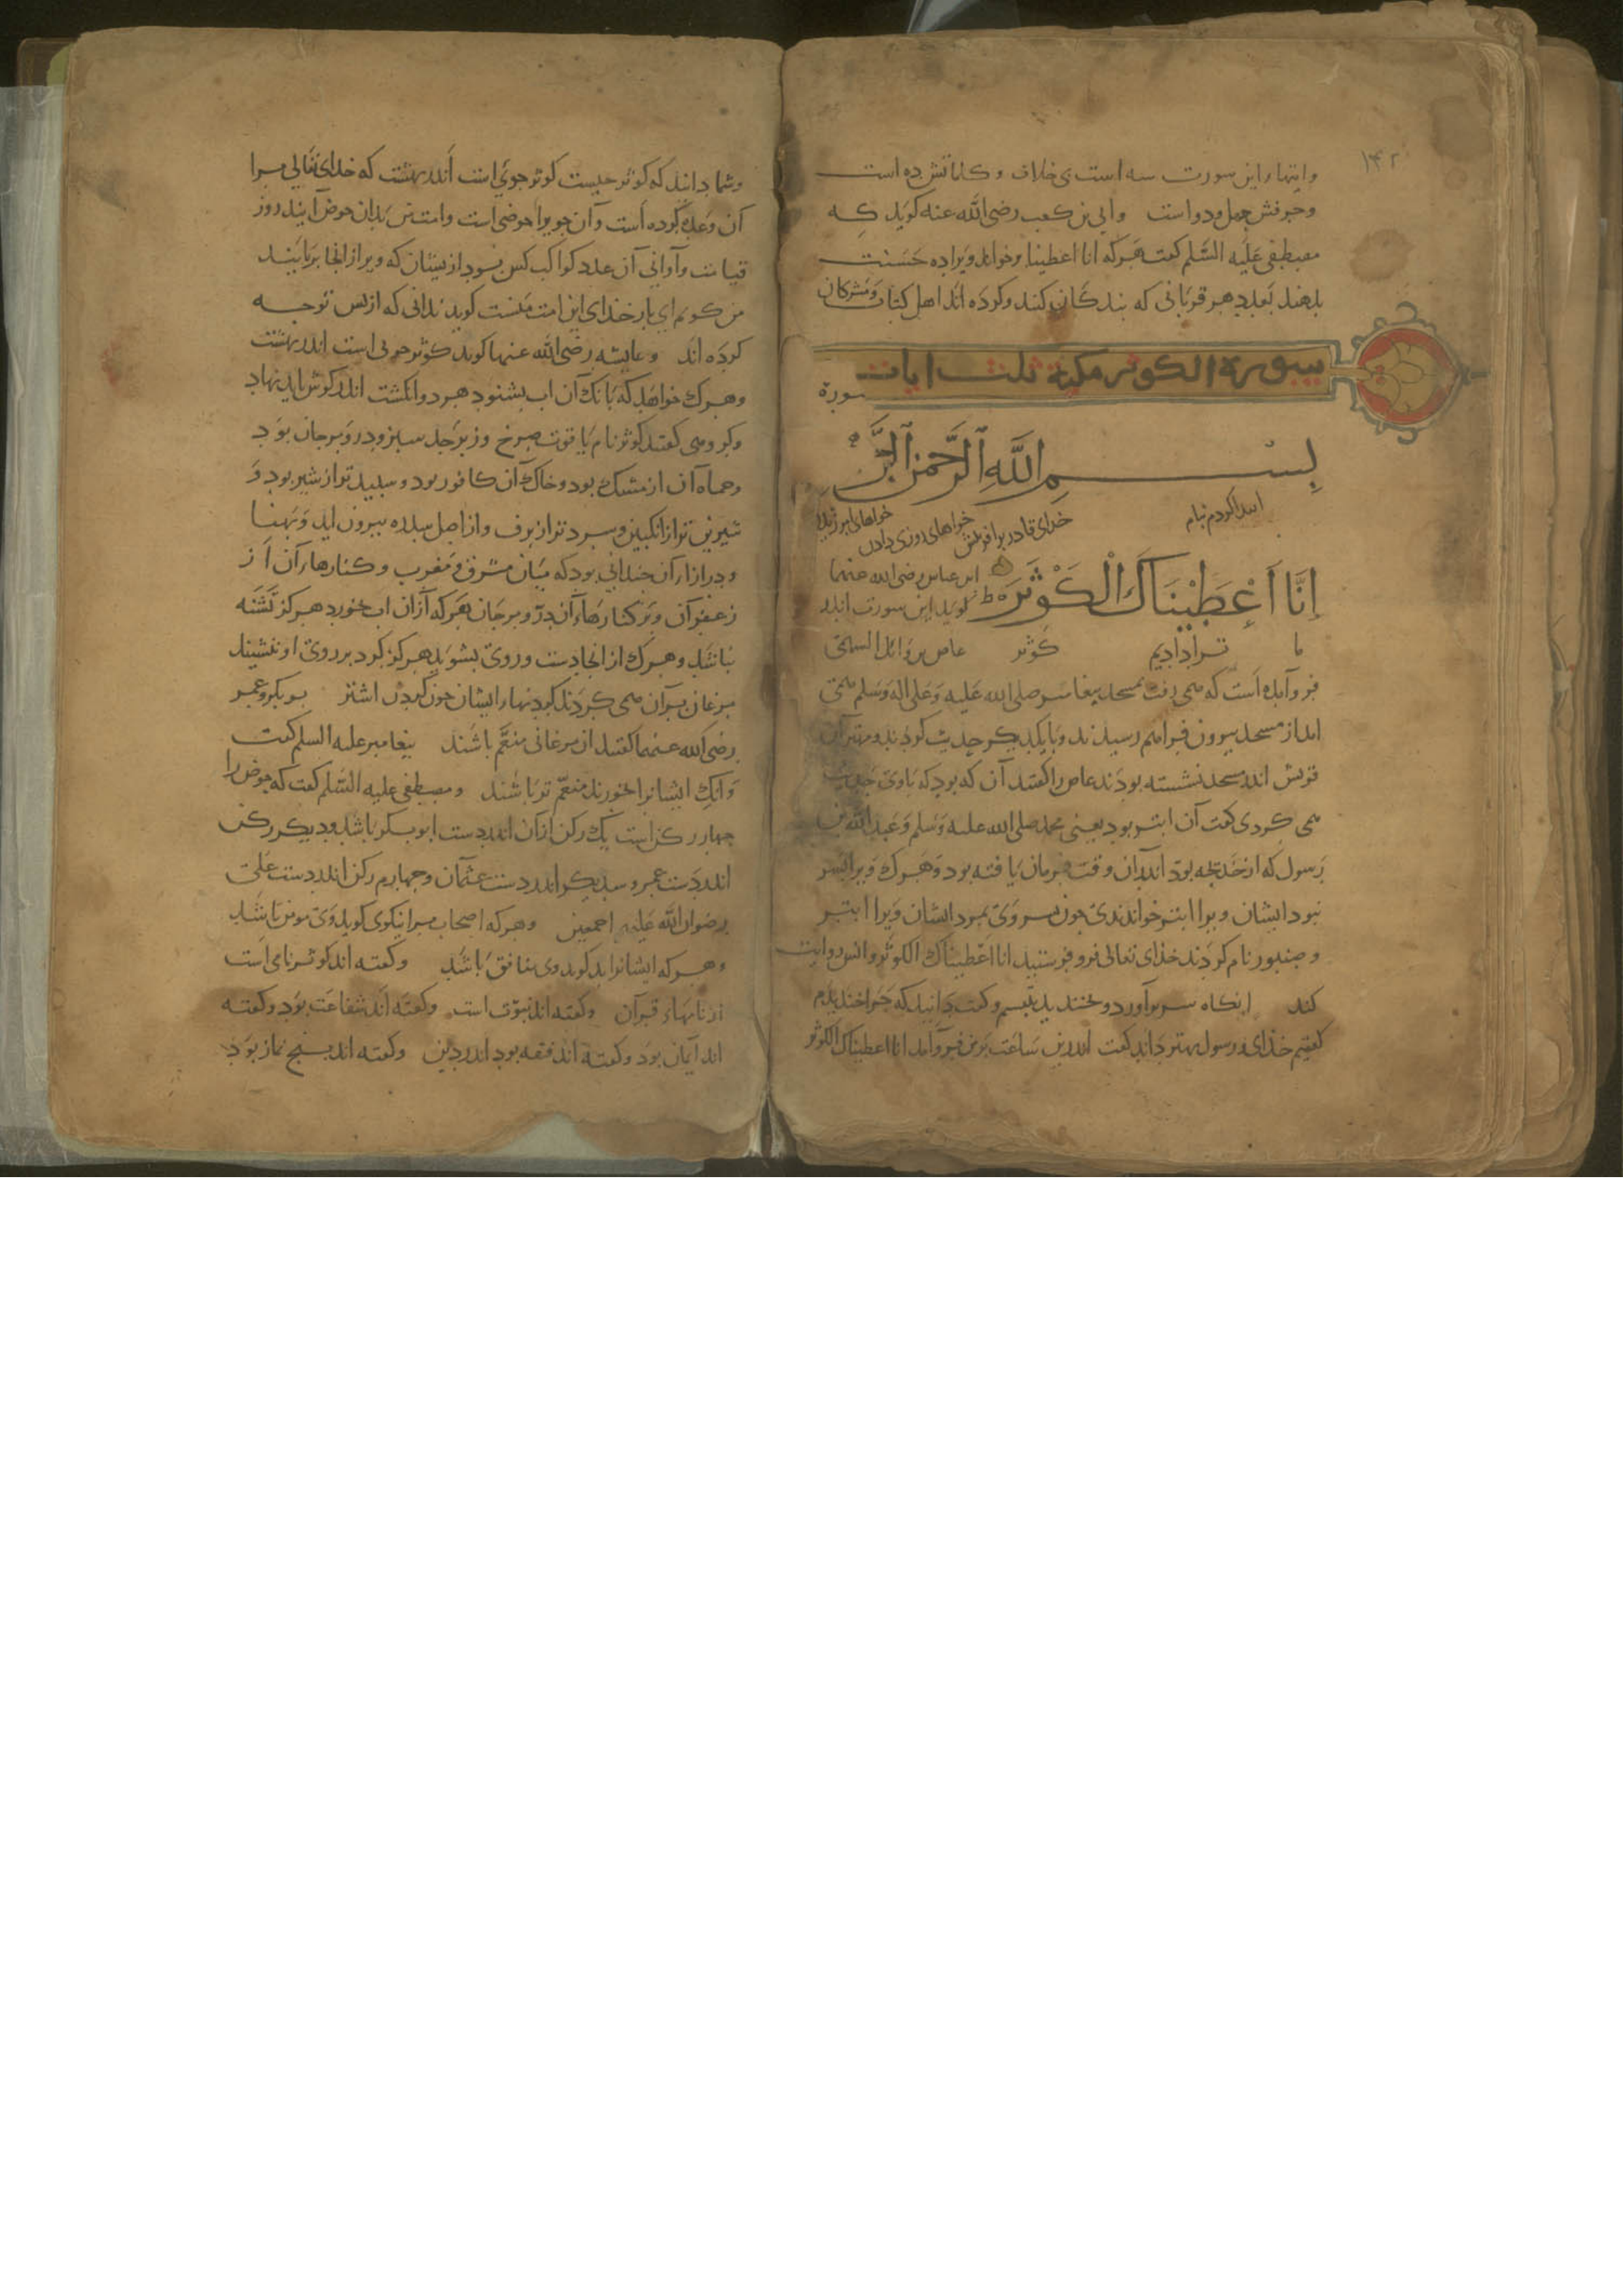 ۱۴۲
وایتهاء این سورت سه است بی خلاف و کلماتش ده است
وحرفش چهل ودو است وابی بن کعب رضی الله عنه کوید که
مصطفی علیه السّلم کفت هرکه انا اعطینا وخواند ویرا ده حسنت
بدهند بعدد هر قربانی که بندکان کنند وکرده اند اهل کتاب ومشرکان
سورة الکوثر مکیة ثلث ایات
سورة
بِسْمِ اللَّهِ الرَّحْمَنِ الرَّ
ابتدا کردم بنام خدای قادر بر افرینش خواهای روزی دادن خواهای
إِنَّا أَعْطَيْنَاكَ الْكَوْثَرَ ط ابن عباس رضی الله عنهما
کوید این سورت اندر
ما ترا دادیم کوثر عاص بن وائل السهمی
فرو آمده است که می رفت بمسجد پیغامبر صلی الله علیه وعلی اله وسلم می
امد از مسجد بیرون فراهم رسیدند وبا یکدیکر حدیث کردند ومهتران
قریش اندر مسجد نشسته بودند عاص را کفتند آن که بود که باوی حدیث
می کردی کفت آن ابتر بود یعنی محمد صلی الله علیه وسلم وعبد الله بن
رسول که از خدیجه بود اندران وقت فرمان یافته بود وهرک ویرا پسر
نبود ایشان ویرا ابتر خواندندی چون پسر وی بمرد ایشان ویرا ابتر
وصنبور نام کردند خدای تعالی فرو فرستید انا اعطیناک الکوثر وانس روایت
کند انکاه سر براورد وبخندید بتبسم وکفت دانید که چرا خندیدم
کفتیم خدای ورسول بهتر داند کفت اندرین ساعت برمن فرو آمد انا اعطیناک الکوثر
وشما دانید که کوثر چیست کوثر جویی است اندر بهشت که خدای تعالی مرا
آن وعده کرده است وآن جویرا حوضی است وامت من بدان حوض آیند روز
قیامت وآوانی آن عدد کواکب کس بود ازیشان که ویرا از انجا بر
من کویم ای بار خدای این امت منست کوید ندانی که از پس تو چه
کرده اند وعایشه رضی الله عنها کوید کوثر جویی است اندر بهشت
وهرک خواهد که بانک آن اب بشنود هر دو انکشت اندر کوش باید نهاد
وکروهی کفتند کوثر نام یاقوت سرخ وزبرجد سبز ودر ومرجان بود
وحماه آن از مشک بود وخاک آن کافور بود وسپیدتر از شیر بود و
شیرین تر از انکبین وسردتر از برف واز اصل سدره بیرون اید وپهنا
ودرازاء آن چندانی بود که میان مشرق ومغرب وکنارهاء آن از
زعفران وبر کنارهاء آن در ومرجان هرکه ازان اب خورد هرکز تشنه
نباشد وهرک از انجا دست وروی بشوید هرکز کرد بر روی او ننشیند
مرغان بران می کردند کردنهاء ایشان چون کردن اشتر بوبکر وعمر
رضی الله عنهما کفتند ان مرغانی منعّم باشند پیغامبر علیه السلم کفت
وانک ایشانرا خورند منعّم تر باشند ومصطفی علیه السّلم کفت که حوض را
چهار رکن است یک رکن ازان اندر دست ابوبکر باشد ودیکر رکن
اندر دست عمر وسدیکر اندر دست عثمان وچهارم رکن اندر دست علی
رضوان الله علیهم اجمعین وهرکه اصحاب مرا نیکوی کوید وی مومن باشد
وهرکه ایشانرا بد کوید وی منافق باشد وکفته اند کوثر نامی است
از نامهاء قرآن وکفته اند نبوّت است وکفته اند شفاعت بود وکفته
اند آیمان بود وکفته اند فقه بود اندر دین وکفته اند پنج نماز بود